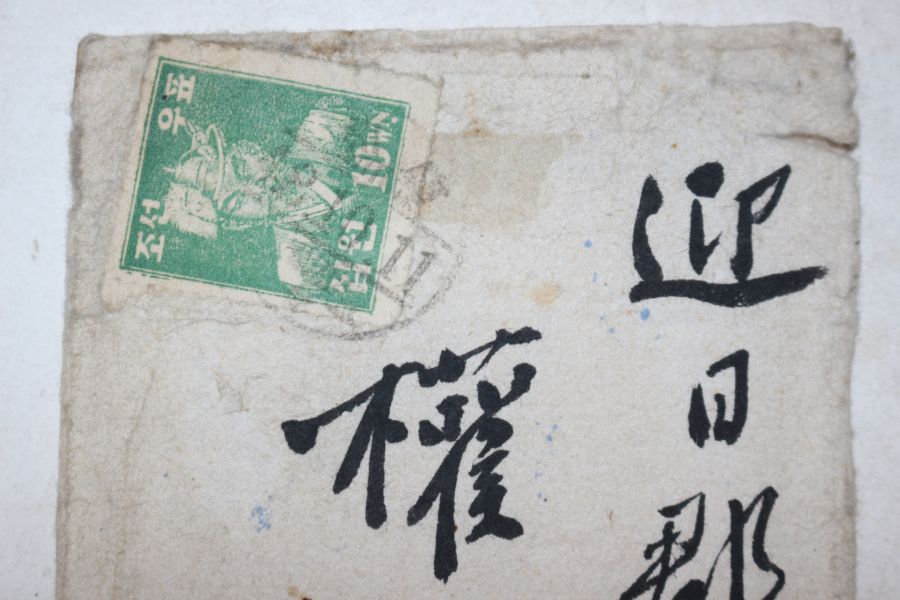 조선
우표
10 WN.
십원
11
迎日郡
權